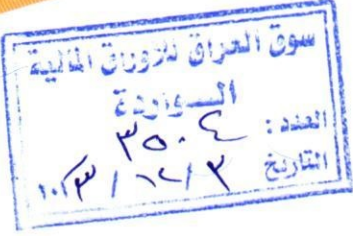 سوق العراق للاوراق المالية
الـــواردة
العدد : ٣٥٠٤
التاريخ ٣ / ١٢ / ٢٠٢٣